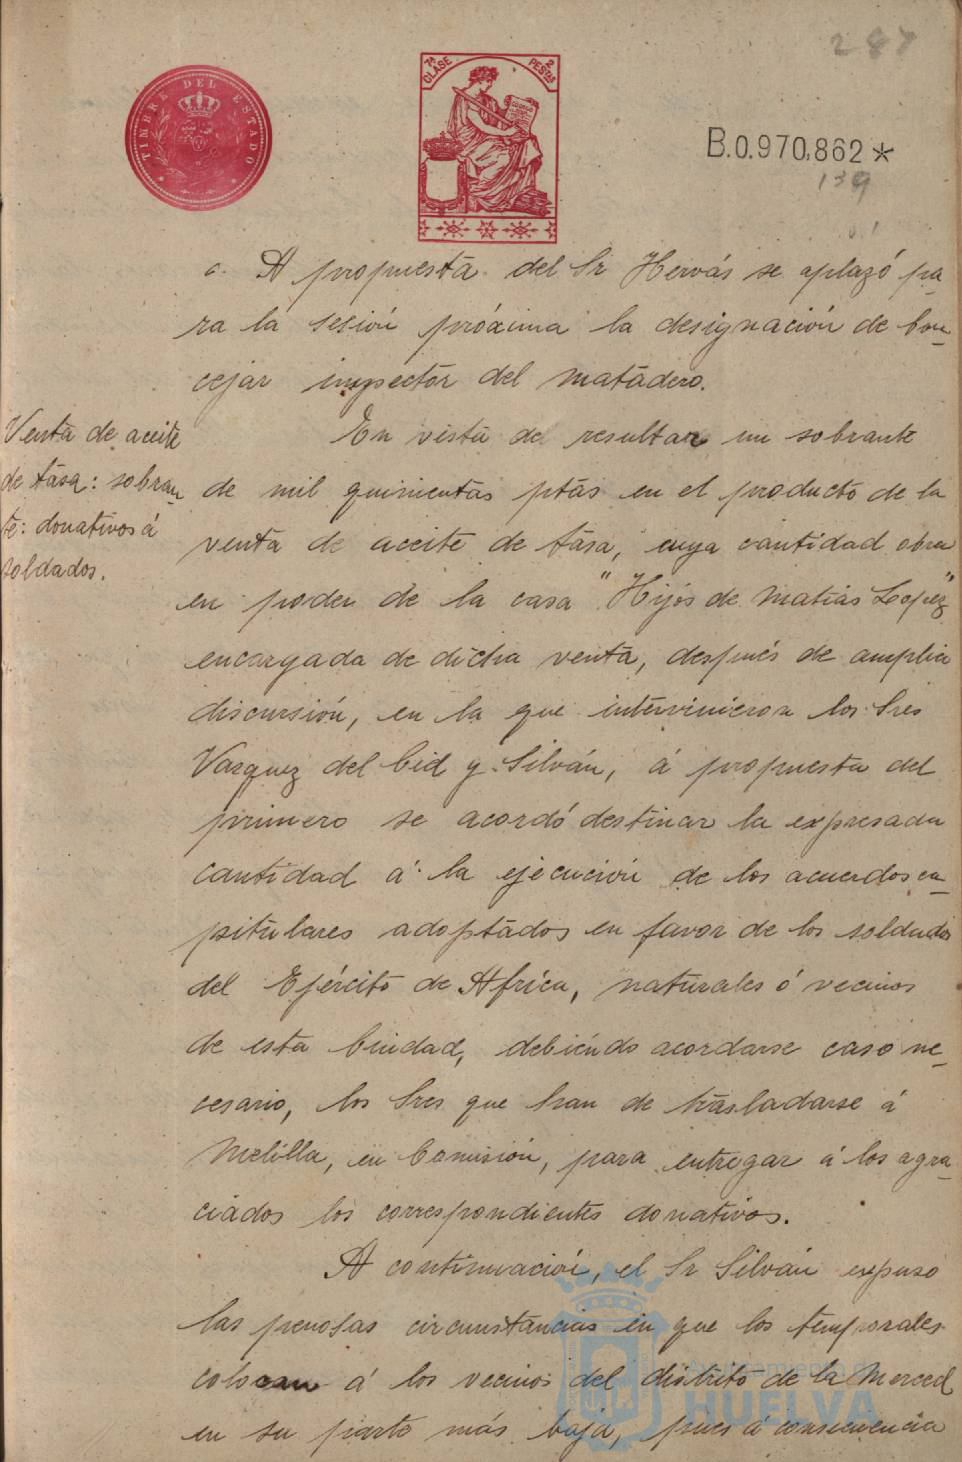 287
TIMBRE DEL ESTADO
7ª CLASE
2 PESETAS
B.0.970,862 *
139
A propuesta del Sr Hervás se aplazó pa-
ra la sesión próxima la designación de Con-
cejar inspector del matadero.
Venta de aceite
de tasa: sobran
te: donativos á
soldados.
En vista de resultar un sobrante
de mil quinientas ptas en el producto de la
venta de aceite de tasa, cuya cantidad obra
en poder de la casa "Hijos de Matias Lopez"
encargada de dicha venta, después de amplia
discursión, en la que intervinieron los Sres
Vazquez del Cid y Silván, á propuesta del
primero se acordó destinar la expresada
cantidad á la ejecución de los acuerdos ca-
pitulares adoptados en favor de los soldados
del Ejército de Africa, naturales ó vecinos
de esta Ciudad, debiendo acordarse caso ne-
cesario, los Sres que han de trasladarse á
Melilla, en Comisión, para entregar á los agra-
ciados los correspondientes donativos.
A continuación, el Sr Silván expuso
las penosas circunstancias en que los temporales
colocan á los vecinos del distrito de la Merced
en su parte más baja, pues á consecuencia
Ayuntamiento de
HUELVA